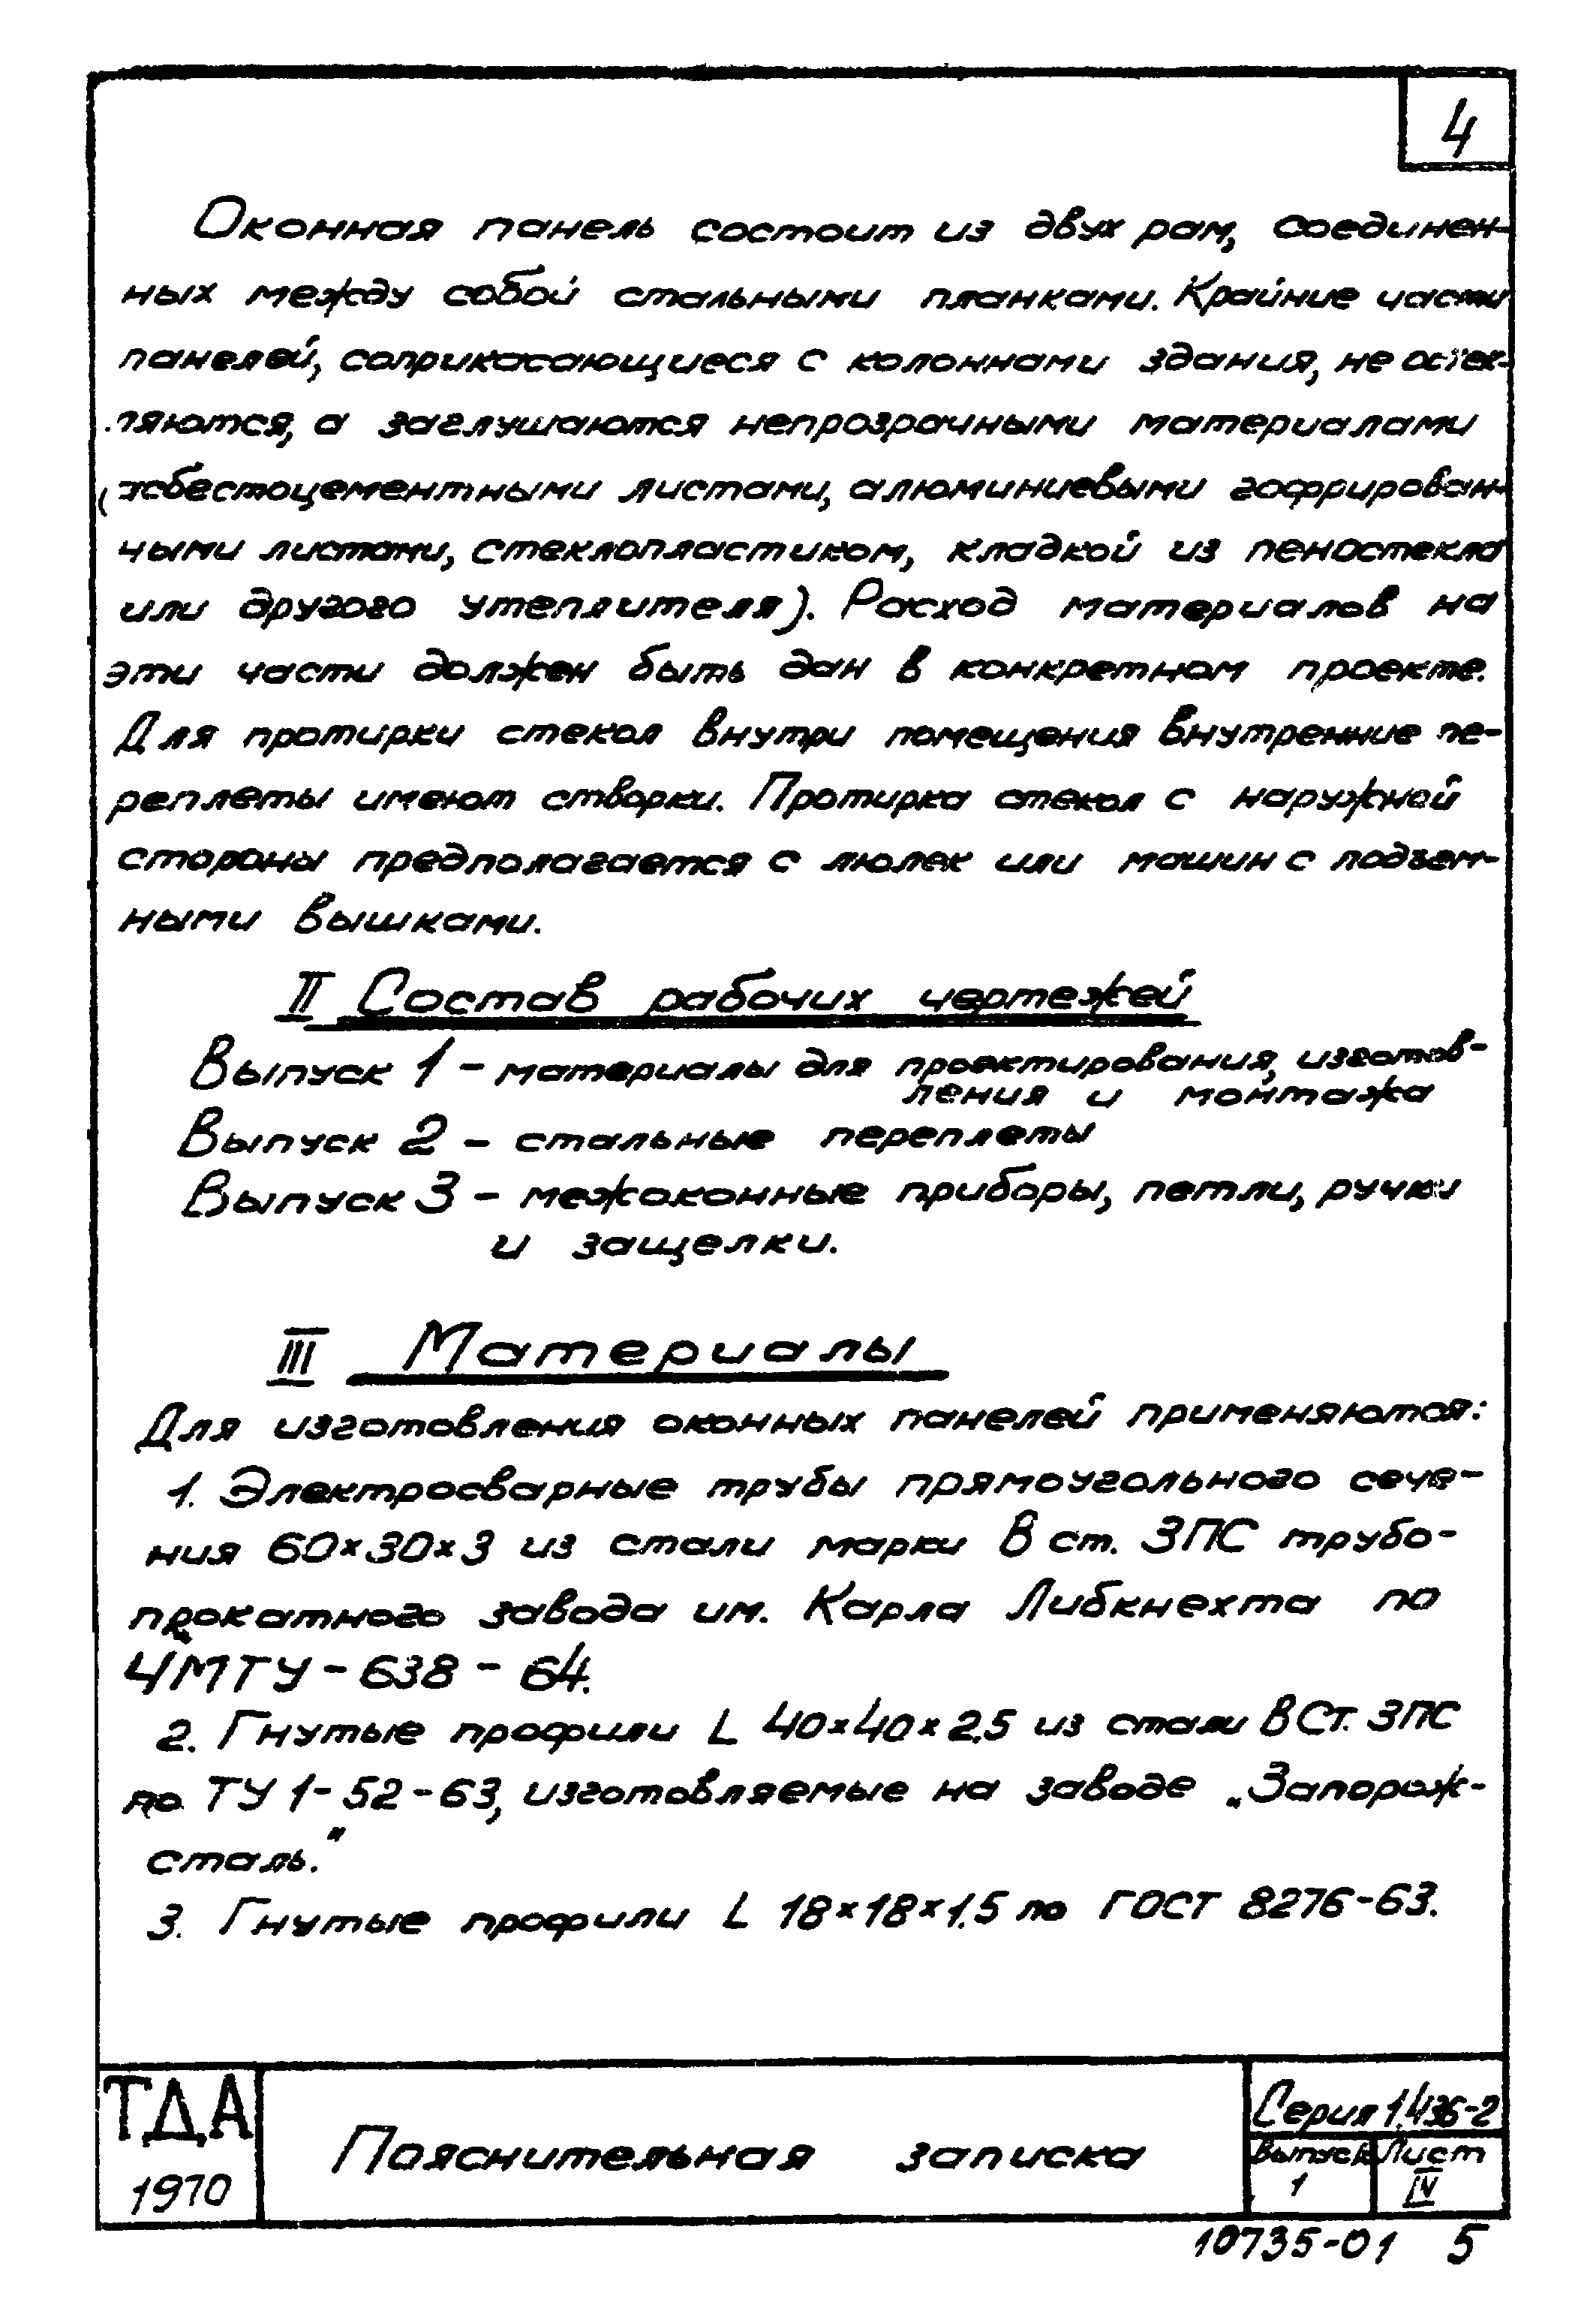 4
Оконная панель состоит из двух рам, соединен-
ных между собой стальными планками. Крайние части
панелей, соприкасающиеся с колоннами здания, не остек-
ляются, а заглушаются непрозрачными материалами
(асбестоцементными листами, алюминиевыми гофрирован-
ными листами, стеклопластиком, кладкой из пеностекла
или другого утеплителя). Расход материалов на
эти части должен быть дан в конкретном проекте.
Для протирки стекол внутри помещения внутренние пе-
реплеты имеют створки. Протирка стекол с наружней
стороны предполагается с люлек или машин с подъем-
ными вышками.
II Состав рабочих чертежей
Выпуск 1 - материалы для проектирования, изготов-
ления и монтажа
Выпуск 2 - стальные переплеты
Выпуск 3 - межоконные приборы, петли, ручки
и защелки.
III Материалы
Для изготовления оконных панелей применяются:
1. Электросварные трубы прямоугольного сече-
ния 60×30×3 из стали марки В ст. 3ПС трубо-
прокатного завода им. Карла Либкнехта по
ЧМТУ-638-64.
2. Гнутые профили L 40×40×2,5 из стали ВСт. 3ПС
по ТУ 1-52-63, изготовляемые на заводе „Запорож-
сталь."
3. Гнутые профили L 18×18×1,5 по ГОСТ 8276-63.
ТДА
1970
Пояснительная записка
Серия 1.436-2
Выпуск Лист
1 IV
10735-01 5